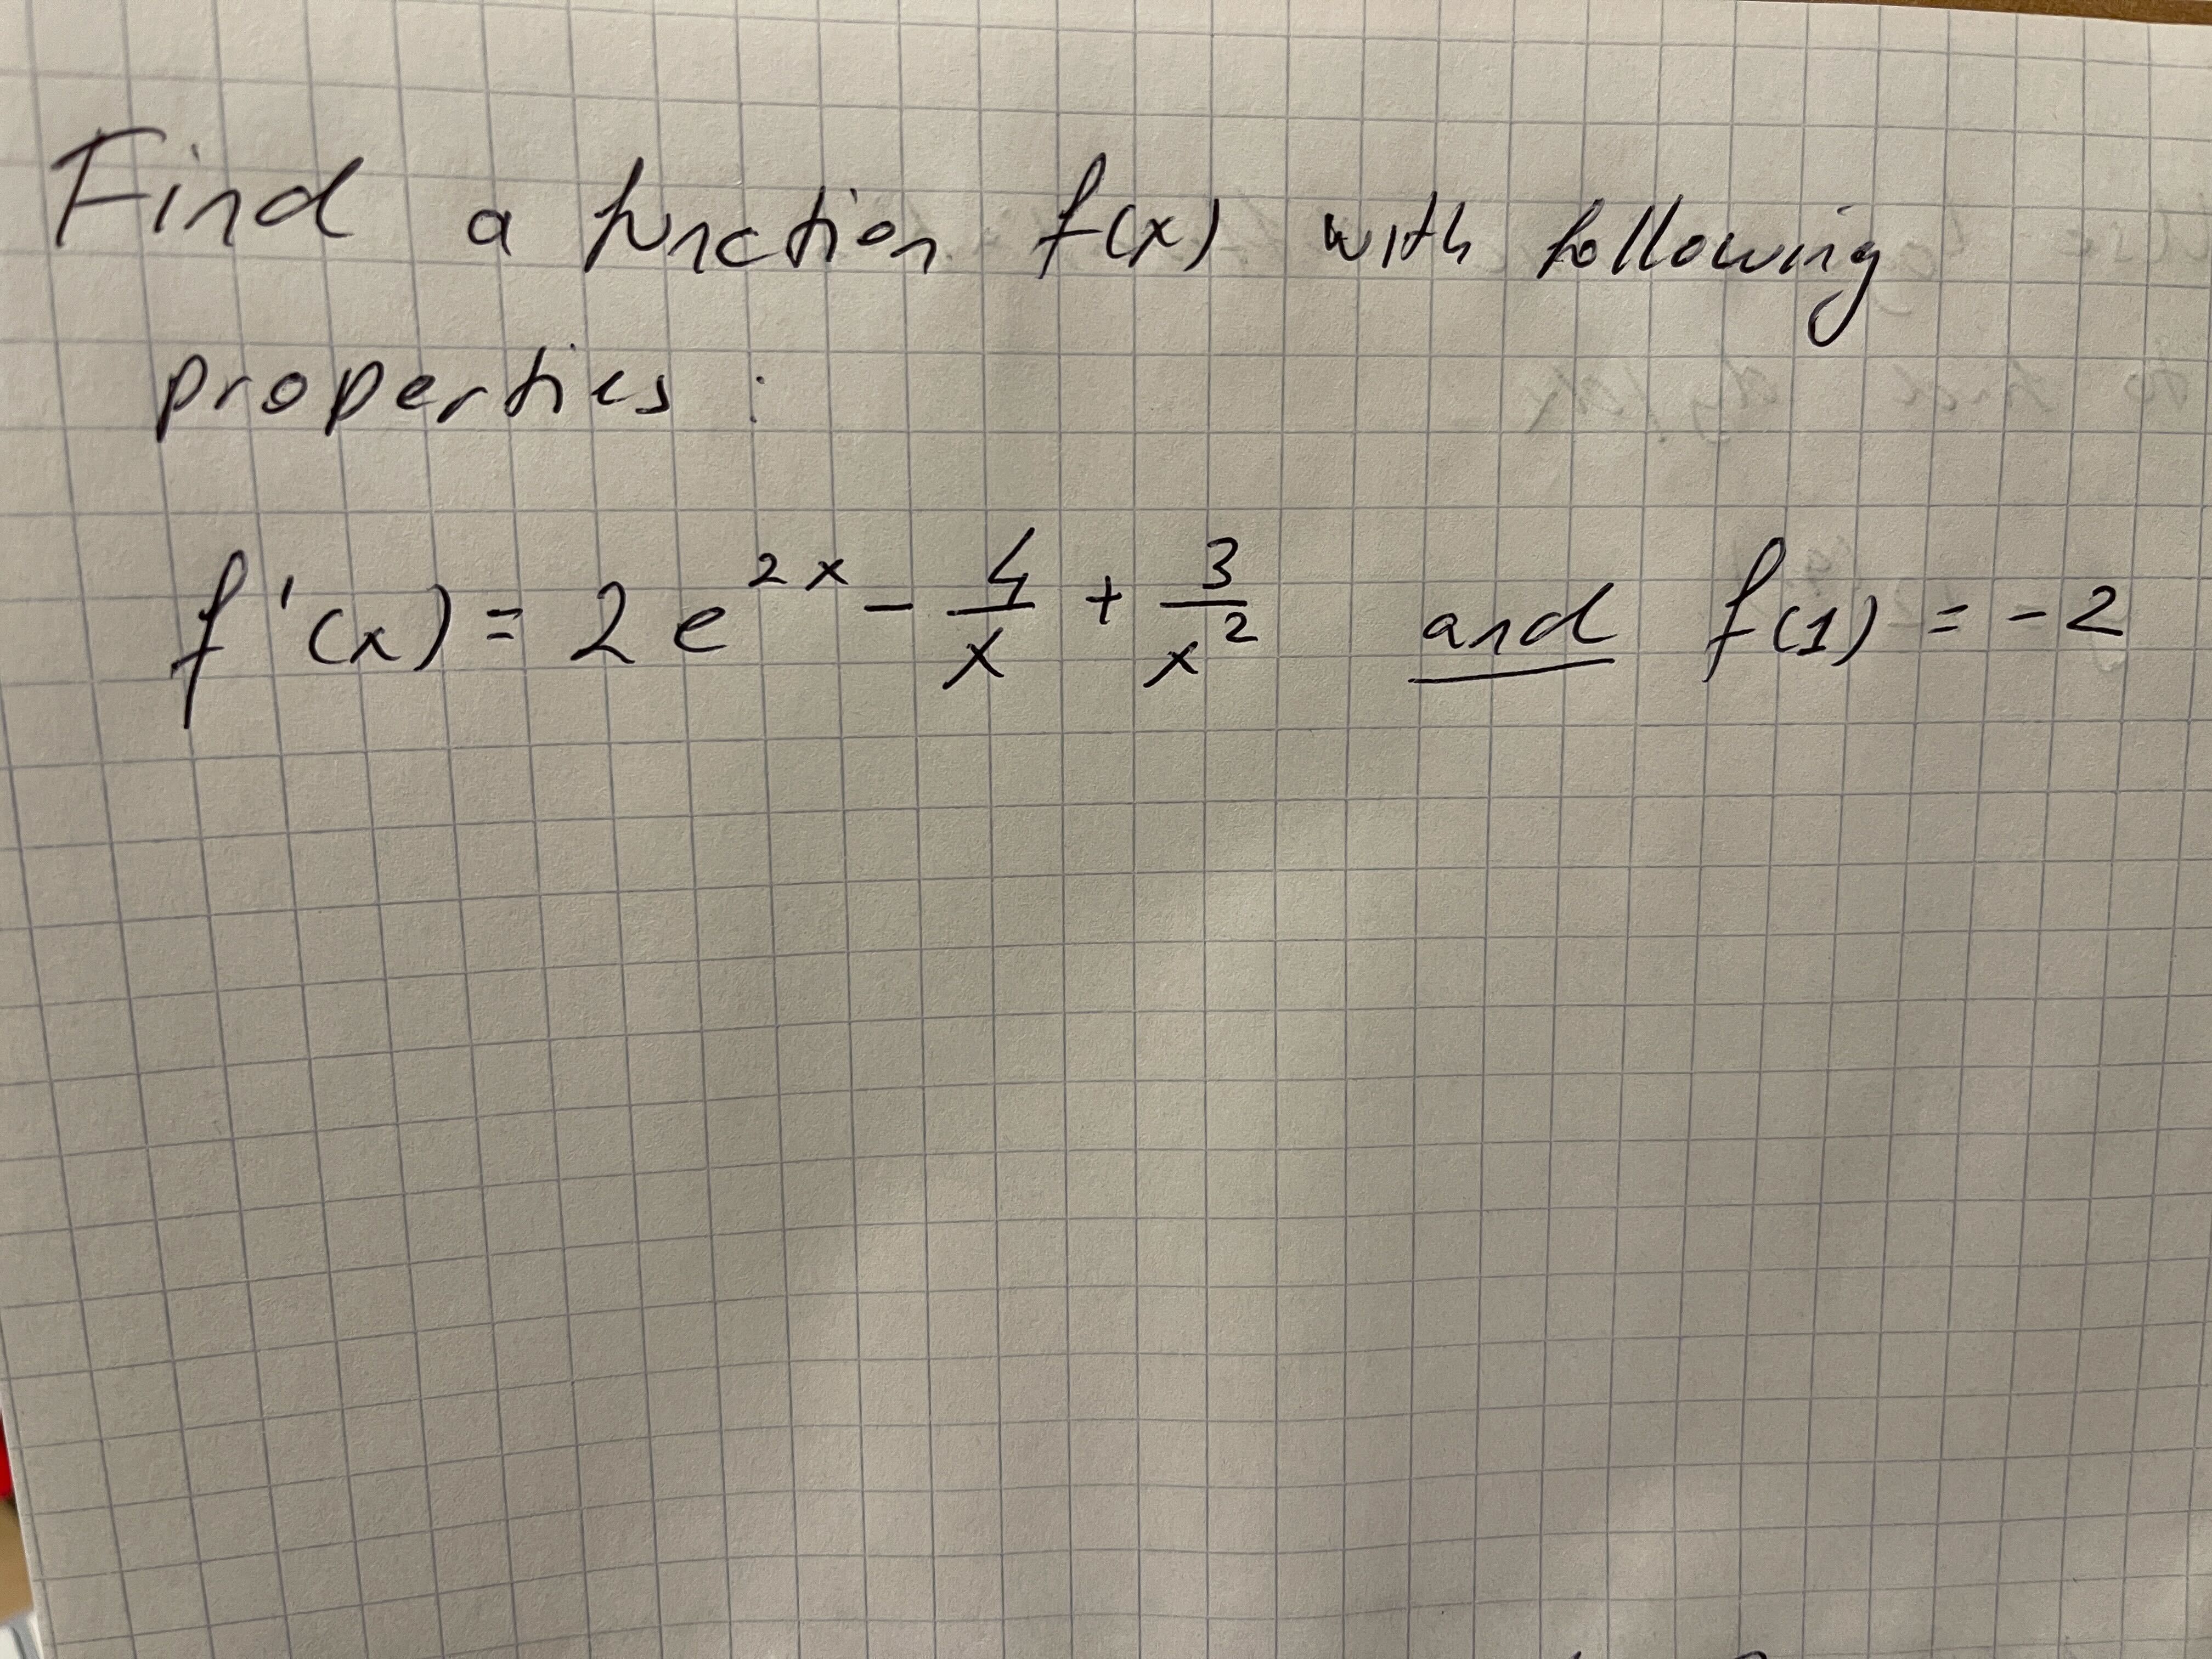 Find a function f(x) with following
properties:
f'(x) = 2e^{2x} - \frac{4}{x} + \frac{3}{x^2} and f(1) = -2